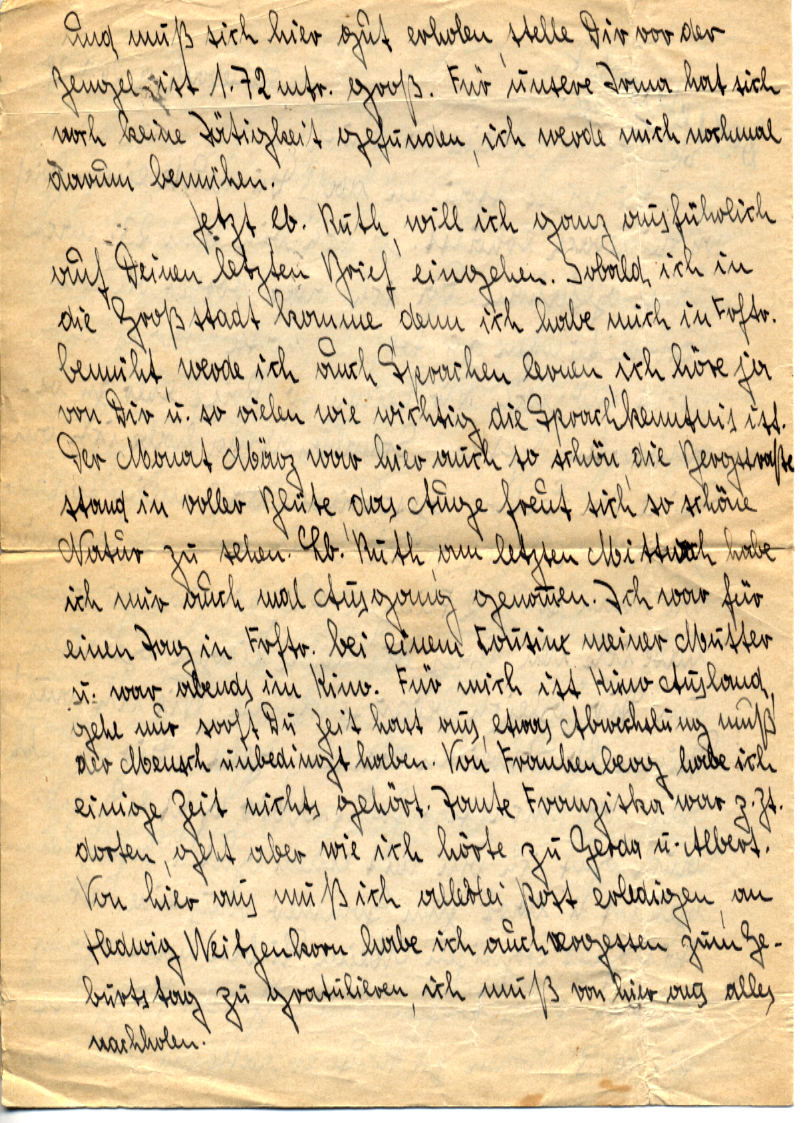 und muß sich hier gut erholen, stelle Dir vor der
Bengel ist 1.72 mtr. groß. Für unsere Irma hat sich
noch keine Tätigkeit gefunden, ich werde mich nochmal
darum bemühen.
Jetzt lb. Ruth, will ich ganz ausführlich
auf Deinen letzten Brief eingehen. Sobald ich in
die Großstadt komme denn ich habe mich in Frftr.
bemüht, werde ich auch Sprachen lernen, ich höre ja
von Dir u. so vielen wie wichtig die Sprachkenntnis ist.
Der Monat März war hier auch so schön, die Bergstraße
stand in voller Blüte das Auge freut sich so schöne
Natur zu sehen. Lb. Ruth, am letzten Mittwoch habe
ich mir auch mal Ausgang genommen. Ich war für
einen Tag in Frftr. bei einem Cousine meiner Mutter
u. war abends im Kino. Für mich ist Kino Ausland,
gehe nur sooft Du Zeit hast aus, etwas Abwechslung muß
der Mensch unbedingt haben. Von Frankenberg habe ich
einige Zeit nichts gehört. Tante Franziska war z. Zt.
dorten, geht aber wie ich hörte zu Gerda u. Albert.
Von hier aus muß ich allerlei Post erledigen, an
Hedwig Weitzenkorn habe ich auch vergessen zum Ge-
burtstag zu gratulieren, ich muß von hier aus alles
nachholen.